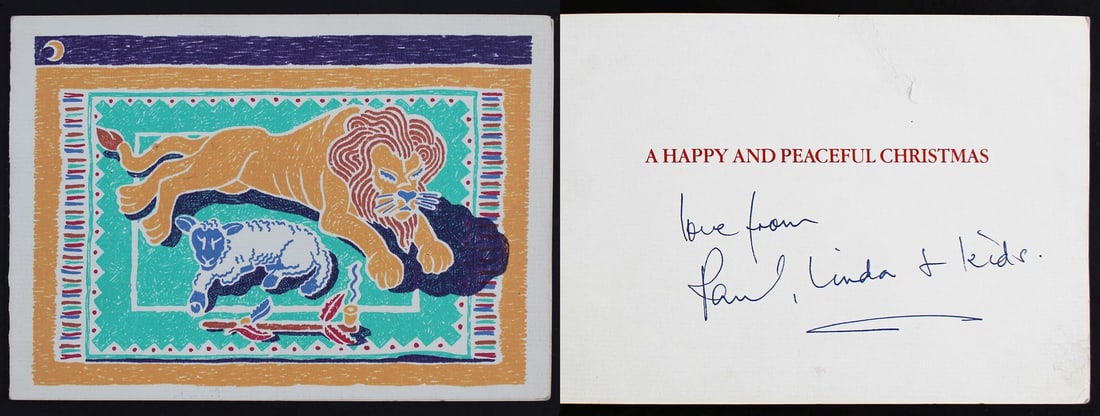 A HAPPY AND PEACEFUL CHRISTMAS
love from
Paul, Linda & kids.